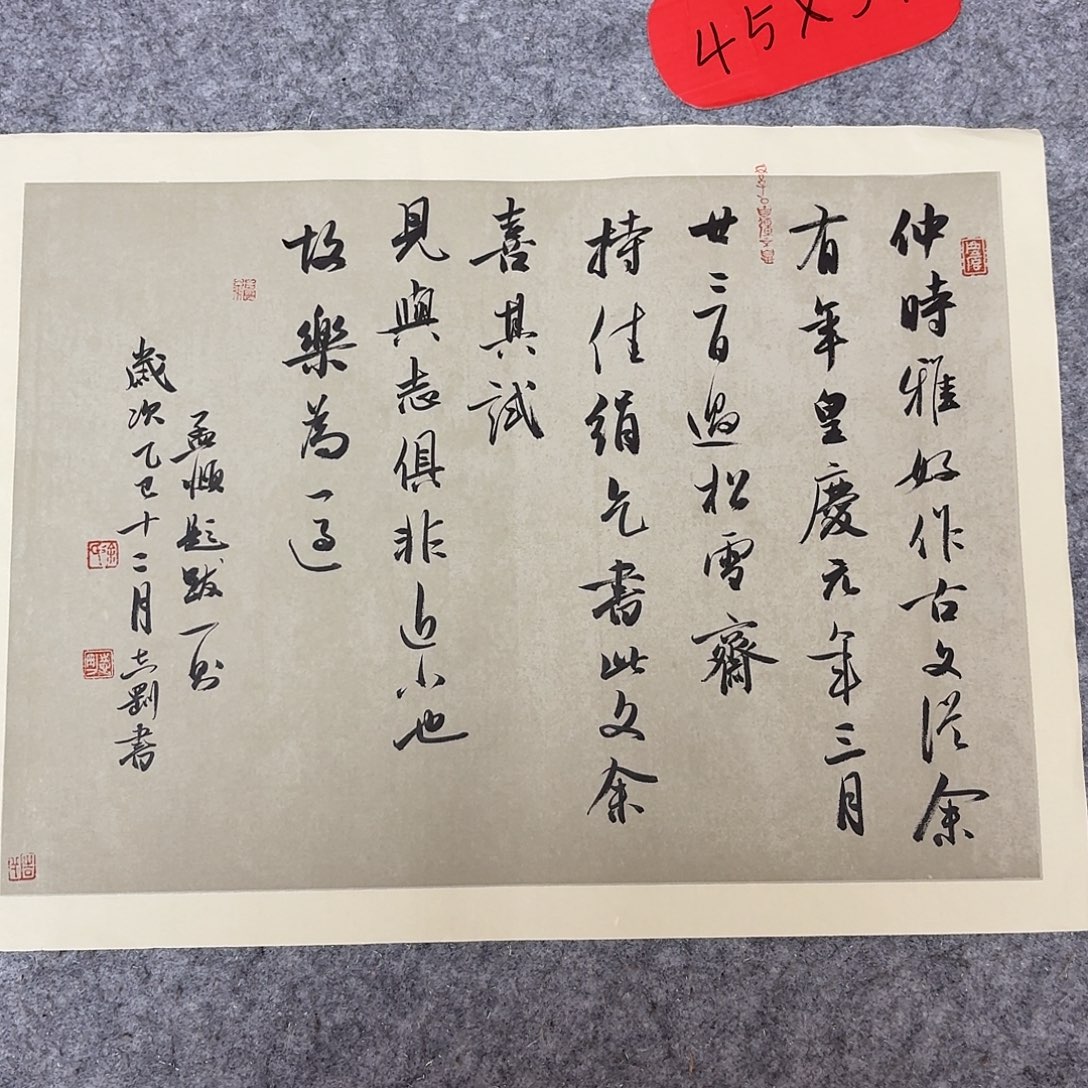 仲時雅好作古文從余
有年皇慶元年三月
廿三日過松雪齋
持佳絹乞書此文余
喜其試
見與志俱非近小也
故樂為一過
孟頫題跋一則
歲次乙巳十二月志剛書
45X